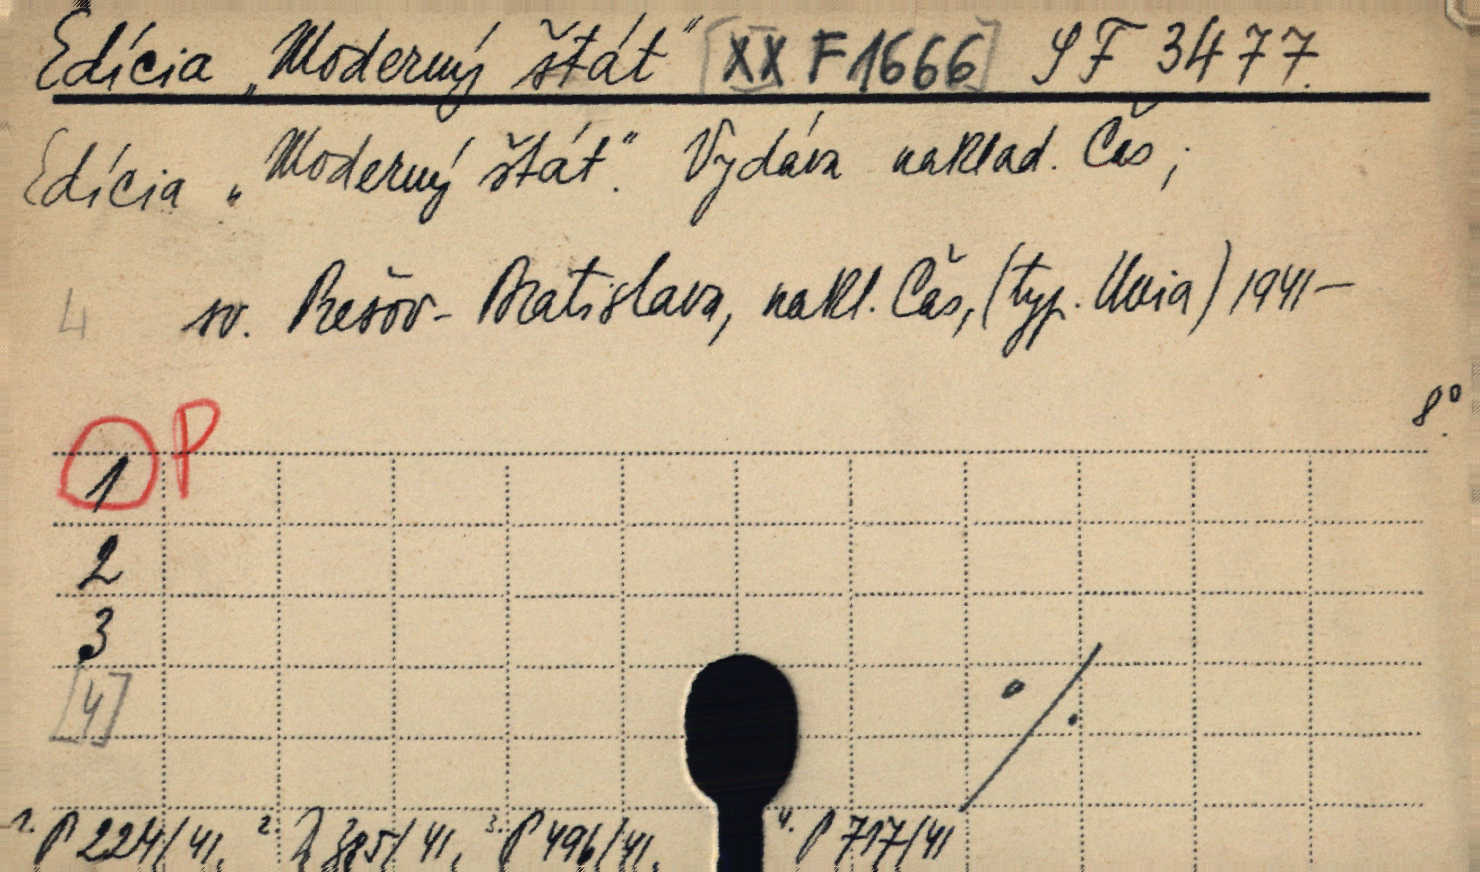 Edícia „Moderný štát“ [XX F 1666] SF 3477.
Edícia „Moderný štát“. Vydáva naklad. Čas;
4 sv. Prešov - Bratislava, nakl. Čas, (typ. Unia) 1941–
8°.
1 P
2
3
[4]
1. P 224/41, 2. 885/41, 3. P 496/41, 4. P 717/41